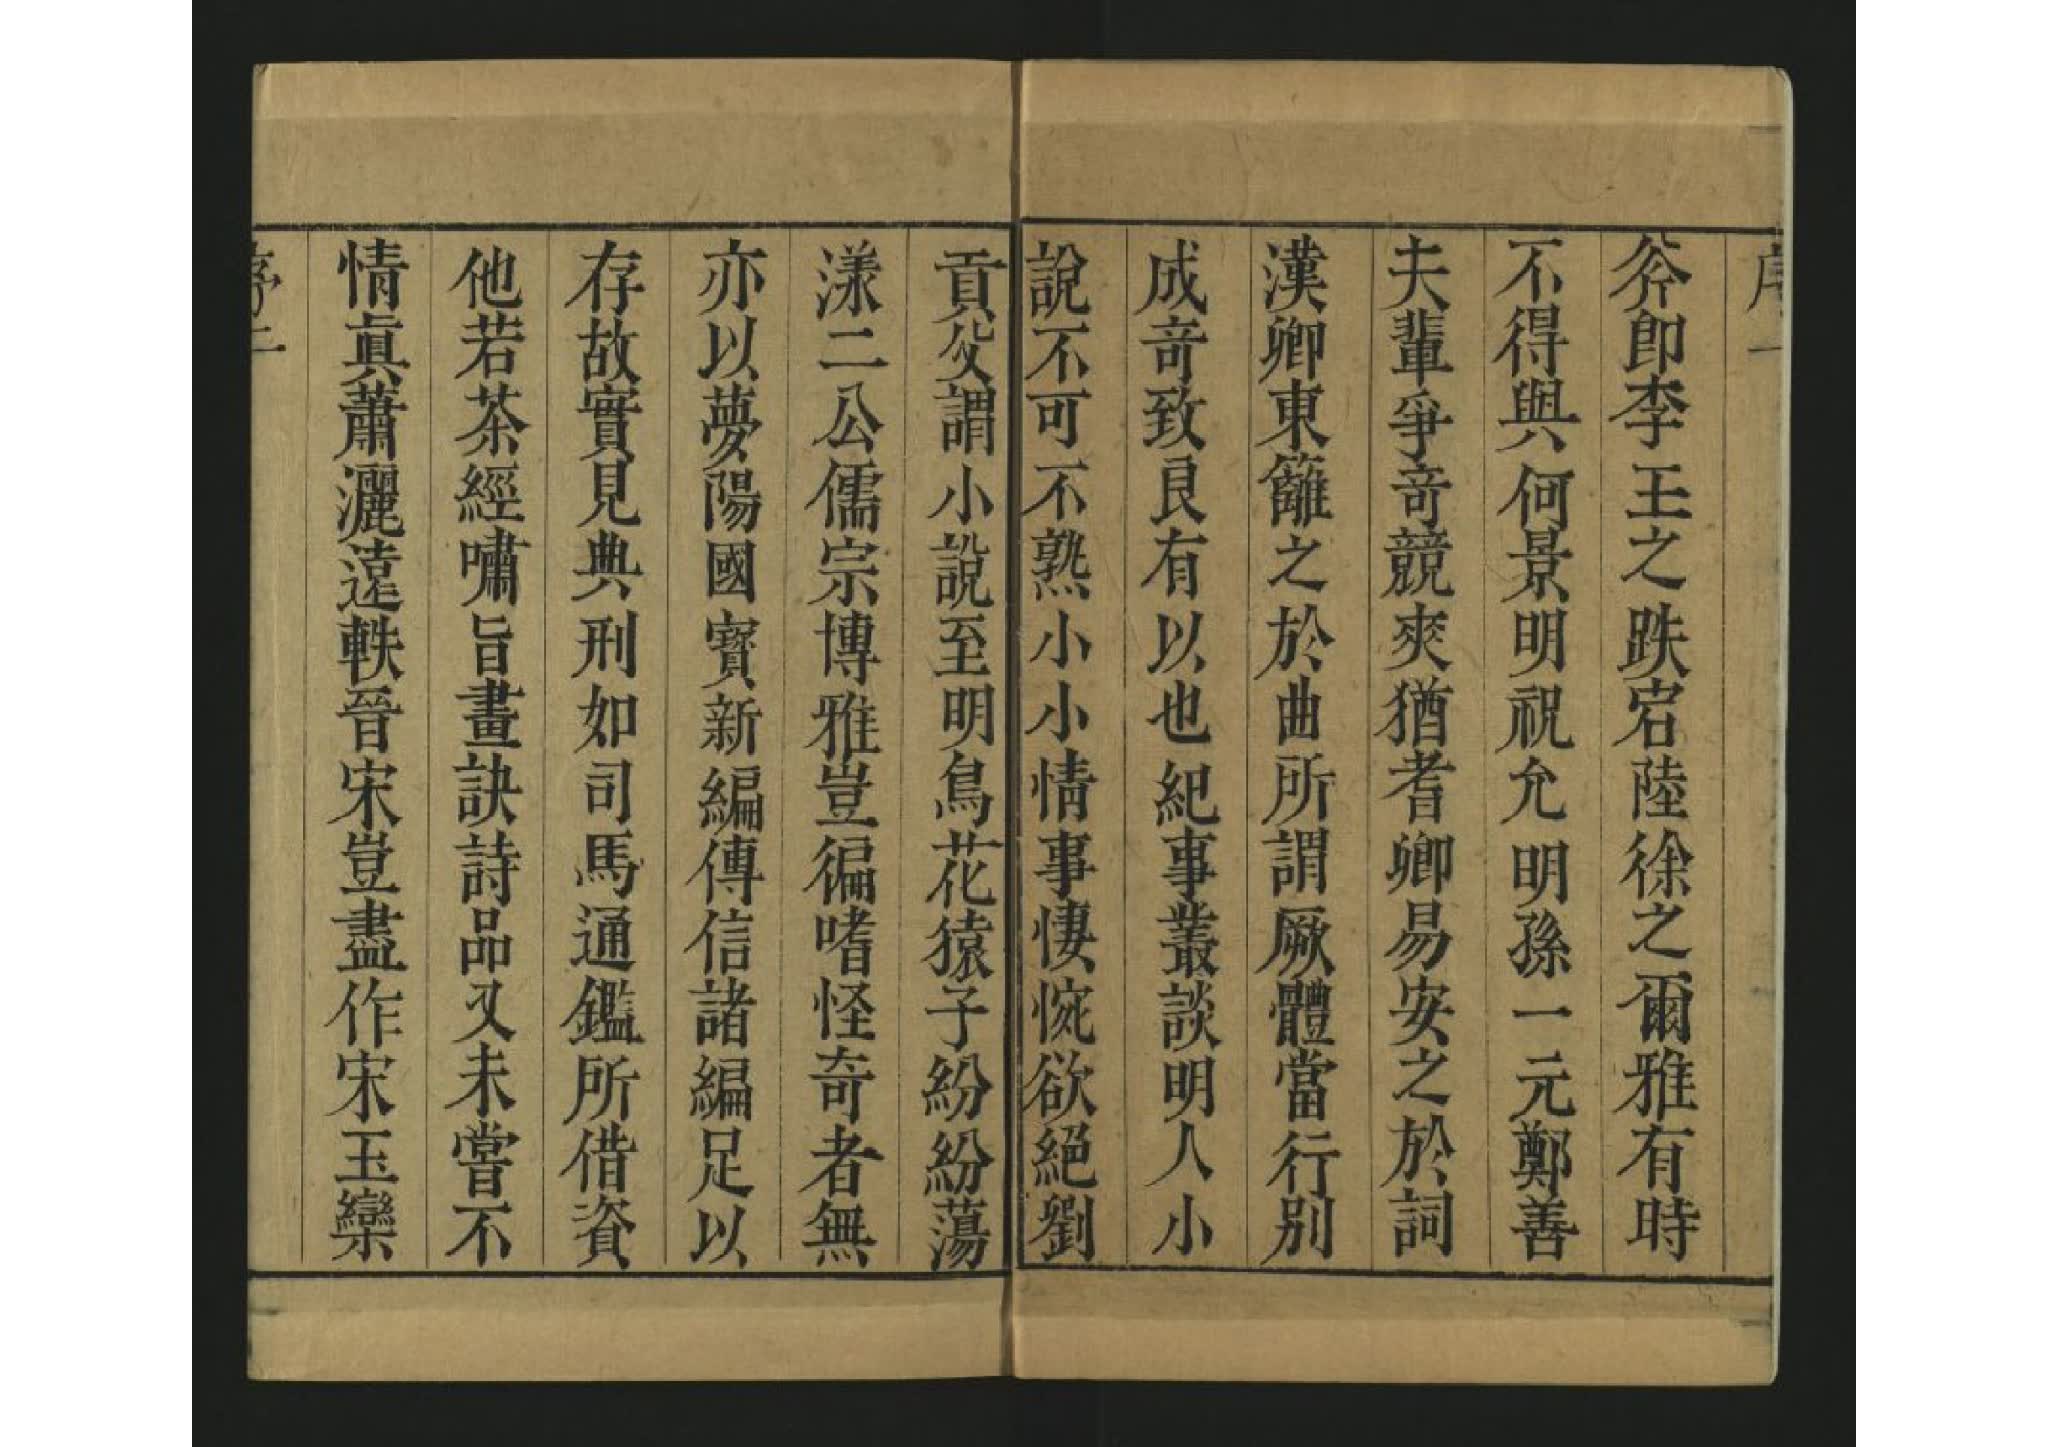 序一
斧即李王之跌宕陸徐之爾雅有時
不得與何景明祝允明孫一元鄭善
夫輩爭竒競爽猶耆卿易安之於詞
漢卿東籬之於曲所謂厥體當行别
成竒致良有以也紀事叢談明人小
說不可不熟小小情事悽惋欲絕劉
貢父謂小說至明鳥花猿子紛紛蕩
漾二公儒宗博雅豈徧嗜怪奇者無
亦以夢陽國寳新編傳信諸編足以
存故實見典刑如司馬通鑑所借資
他若茶經嘯旨畫訣詩品又未嘗不
情眞蕭灑遠軼晉宋豈盡作宋玉欒
序二